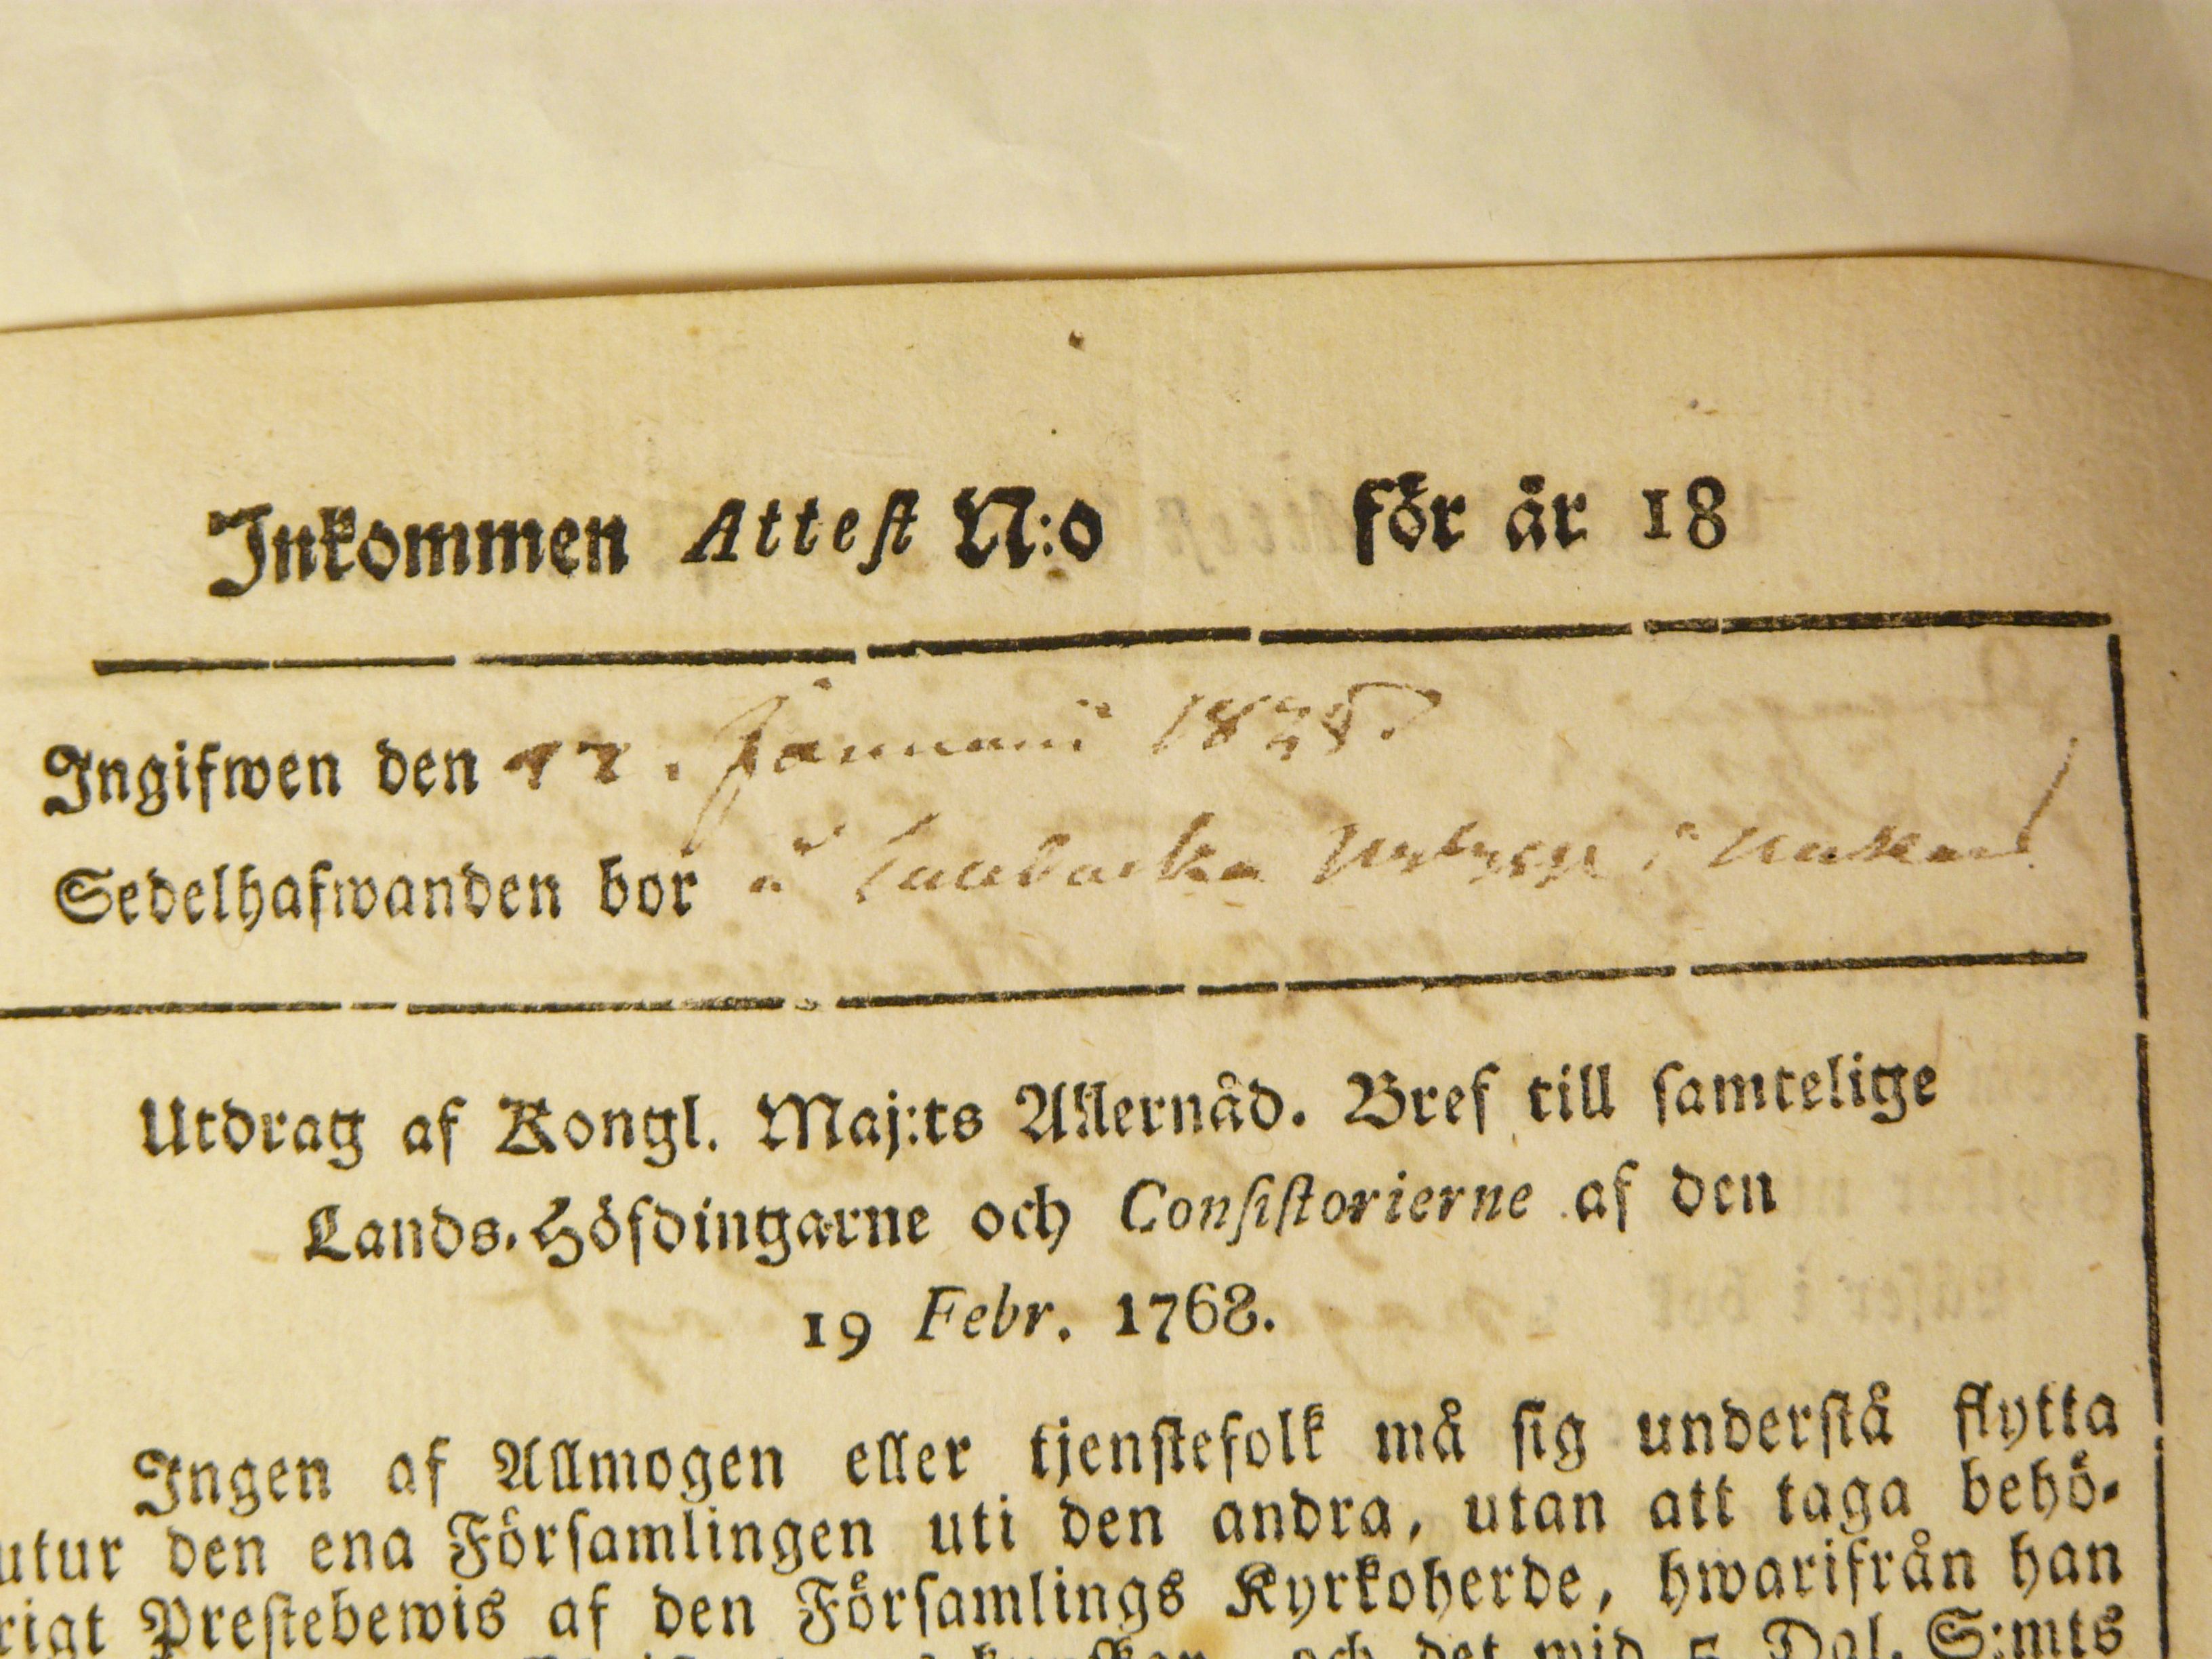 Inkommen Attest N:o för år 18
Ingifwen den 12. Januarii 1825.
Sedelhafwanden bor å
Utdrag af Kongl. Maj:ts Allernåd. Bref till samtelige
Lands-Höfdingarne och Consistorierne af den
19 Febr. 1768.
Ingen af Allmogen eller tjenstefolk må sig understå flytta
utur den ena Församlingen uti den andra, utan att taga behö-
rigt Prestebewis af den Församlings Kyrkoherde, hwarifrån han
och det wid 5 Dal. S:mts